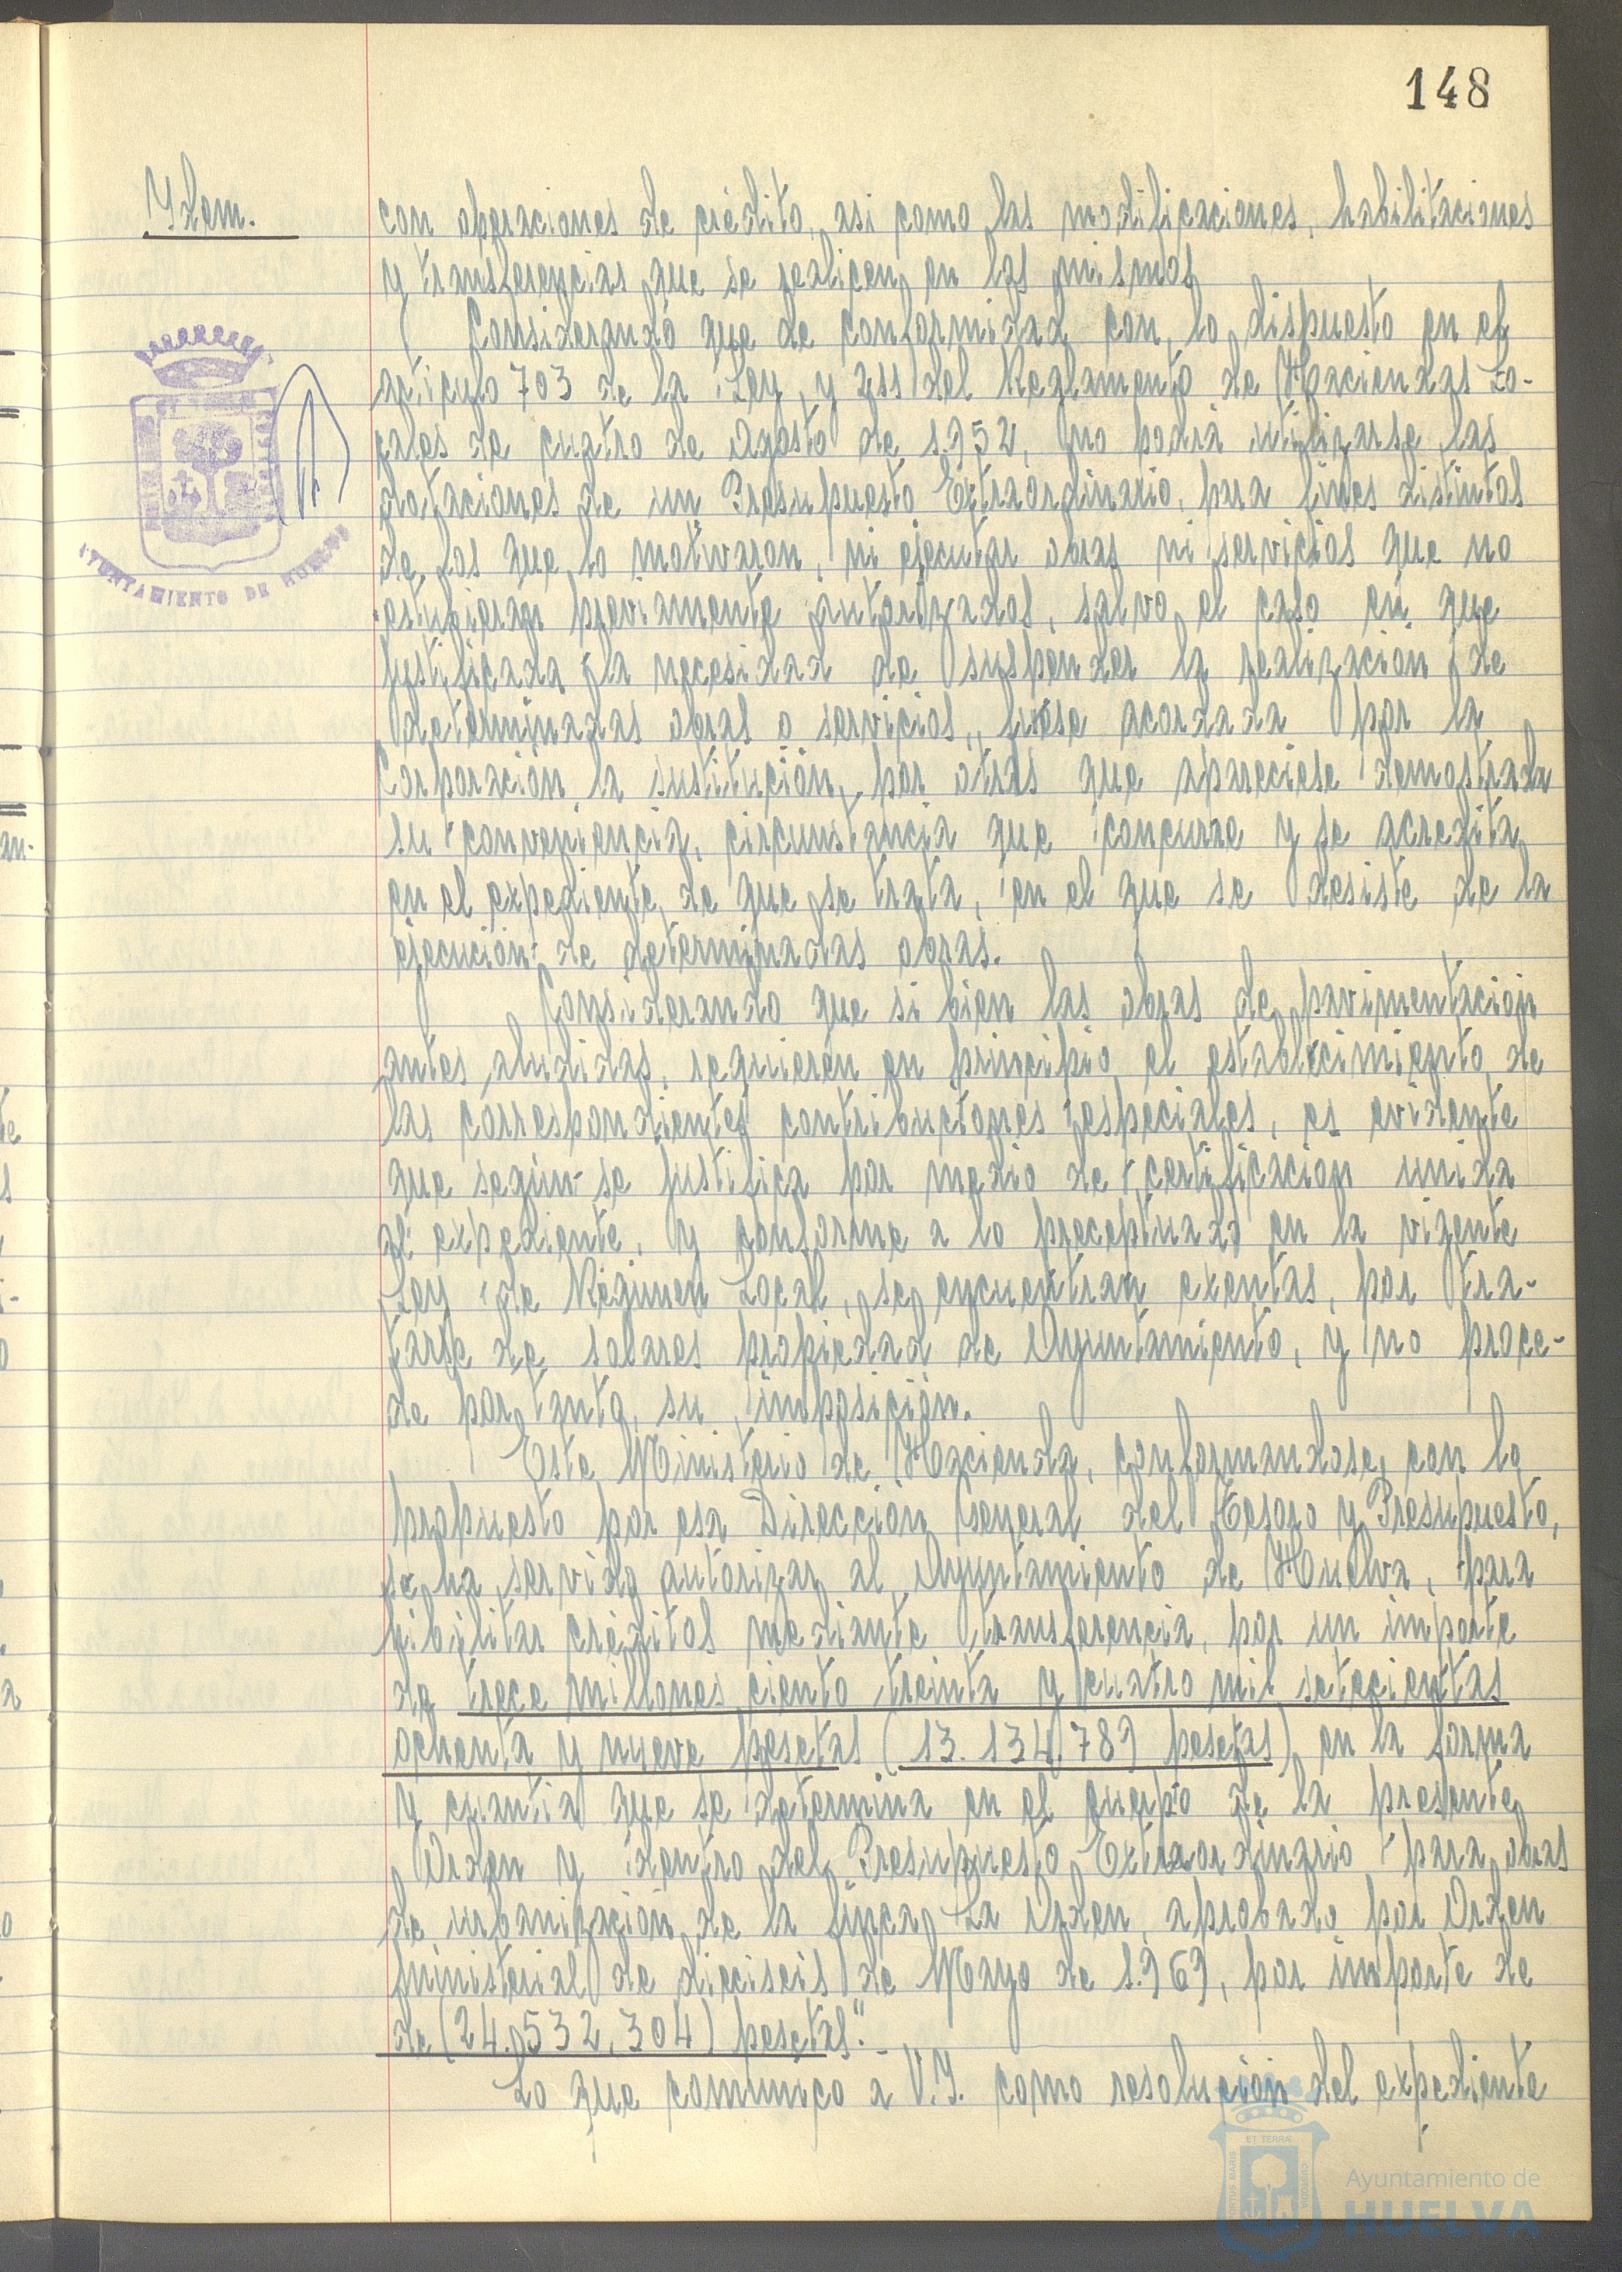 148
Ydem.
con operaciones de crédito, asi como las modificaciones, habilitaciones
y transferencias que se realicen en las mismas
Considerando que de conformidad con lo dispuesto en el
articulo 703 de la Ley, y 255 del Reglamento de Haciendas Lo-
cales de cuatro de Agosto de 1.952, no podrá utilizarse las
dotaciones de un Presupuesto Extraordinario, para fines distintos
de los que lo motivaron, ni ejecutar obras ni servicios que no
estubieran previamente autorizados, salvo el caso en que
justificada la necesidad de suspender la realización de
determinadas obras o servicios, fuese acordada por la
Corporación la sustitución, por otras que apareciese demostrada
su conveniencia, circunstancia que concurre y se acredita
en el expediente de que se trata, en el que se desiste de la
ejecución de determinadas obras.
Considerando que si bien las obras de pavimentación
antes aludidas, requieren en principio el establecimiento de
las correspondientes contribuciones especiales, es evidente
que según se justifica por medio de certificacion unida
al expediente, y conforme a lo preceptuado en la vigente
Ley de Régimen Local, se encuentran exentas, por tra-
tarse de solares propiedad de Ayuntamiento, y no proce-
de por tanto, su imposición.
Este Ministerio de Hacienda, conformandose, con lo
propuesto por esa Dirección General del Tesoro y Presupuesto,
se ha servido autorizar al Ayuntamiento de Huelva, para
créditos mediante transferencia, por un importe
de trece millones ciento treinta y cuatro mil setecientas
ochenta y nueve pesetas (13.134.789 pesetas) en la forma
y cuantia que se determina en el cuerpo de la presente
Orden y dentro del Presupuesto Extraordinario para obras
de urbanización de la finca La Orden, aprobado por Orden
ministerial de dieciseis de Mayo de 1.969, por importe de
de (24.532.304) pesetas".
Lo que comunico a V.Y. como resolución del expediente
AYUNTAMIENTO DE HUELVA
Ayuntamiento de
HUELVA